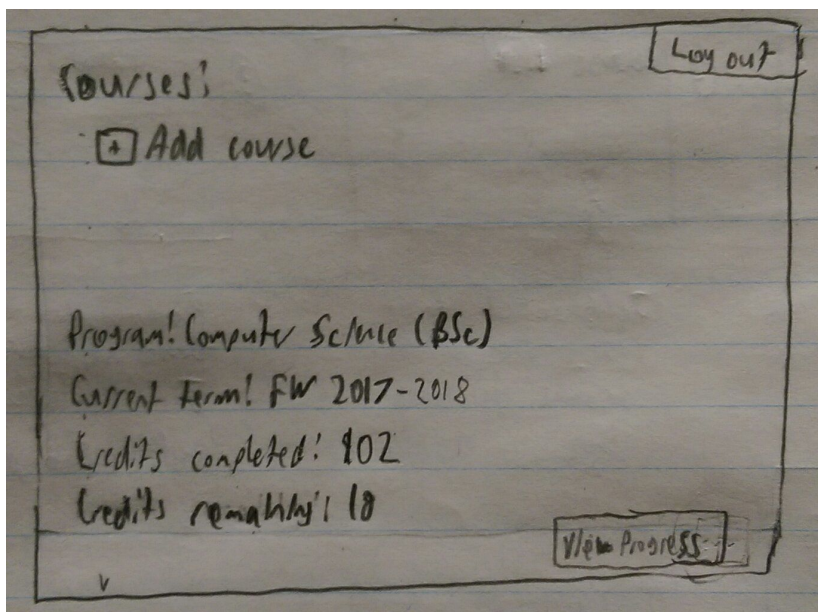 Log out
Courses:
+ Add course
Program: Computer Science (BSc)
Current term: FW 2017-2018
Credits completed: 102
Credits remaining: 18
View Progress